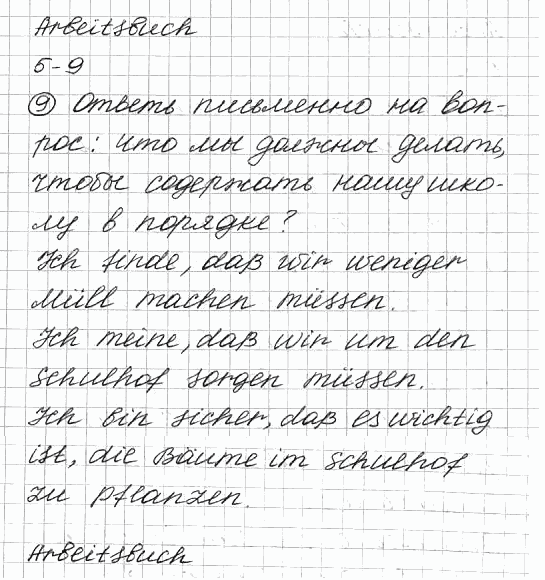 Arbeitsbuch
5-9
⑨ Ответь письменно на воп-
рос: что мы должны делать,
чтобы содержать нашу шко-
лу в порядке?
Ich finde, daß wir weniger
Müll machen müssen.
Ich meine, daß wir um den
Schulhof sorgen müssen.
Ich bin sicher, daß es wichtig
ist, die Bäume im Schulhof
zu pflanzen.
Arbeitsbuch